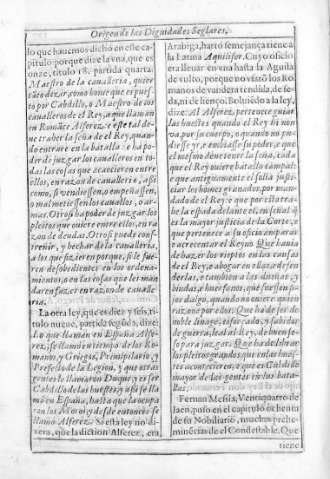 Origen de las Dignidades Seglares,
lo que hauemos dicho en este ca-
pitulo porque dize la vna, que es
onze, titulo 18. partida quarta:
Maestro de la caualleria, quier
tãto dezir, como home que es pues-
to por Cabdillo, o Maestro de los
caualleros del Rey, a que llaman
en Romãce Alferez: e este tal de-
ue traber la seña del Rey, quan-
do entrare en la batalla: e ha po-
der de juzgar los caualleros en to-
das las cosas que acaecieren entre
ellos, en razon de caualleria, assi
como, si vendiessen, o empeñassen,
o malmetiessen los cauallos, o ar-
mas. Otrosi ha poder de juzgar los
pleitos que ouiere entre ellos, en ra-
zon de deudas. Otrosi puede cons-
trenir, y hechar de la caualleria,
a los que fizieren porque, si le fue-
ren desobedientes en lo ordena-
miento, o en las cosas que les man-
daren fazer en razon de caualle-
ria.
La otra ley, que es diez y seis, ti-
tulo nueue, partida segũda, dize:
Lo que llamã en España Alfe-
rez, se llamò en tiempo de los Ro-
manos, y Griegos, Premipilario, y
Prefecto de la Legion, y que otras
gentes le llamaron Duque, y es ser
Cabdillo de las huestes, y assi se lla-
mò en España, hasta que la ocupa-
ron los Moros, y desde entonces se
llamò Alferez. Si esta ley no di-
xera, que la diction Alferez, era,
Arabiga, harto semejança tiene a
la Latina Aquilifer. Cuyo oficio
era lleuar en vna hasta la Aguila
de vulto, porque no vsarõ los Ro-
manos de vandera tendida, de se-
da, ni de lienço. Boluiẽdo a la ley,
dize: Al Alferez pertenece guiar
las huestes quando el Rey hi non
va, por su cuerpo, o quando no pu-
diesse yr, e embiasse su poder, e que
el mesmo deue tener la seña, cada
que el Rey ouiere batalla campal:
e que antiguamente el solia justi-
ciar los homes granados, por man-
dado del Rey: e que por esto trahe
la espada delante el, en señal q̃
es la mayor justicia de la Corte, y
que pertenece a su oficio amparar
e acrecentar el Reyno. Que hauia
de hazer los rieptos en las cosas
del Rey, e abogar en ellos, e defen-
derlas, o tambien a las dueñas, y
biudas, e huerfanos, que fuessen fi-
jos dalgo, quando no ouiere quien
razone por ellos. Que ha de ser de
noble linaje, esforçado, y sabidor
de guerra, leal al Rey, de buen se-
so para juzgar. Que ha de librar
los pleitos grandes, que en las hues-
tes acaecieren, e que es Cabdillo
mayor de las gentes en las bata-
llas.
Fernan Mesia, Ventiquatro de
Iaen, puso en el capitulo ochenta
de su Nobiliario, muchas prehe-
minencias de el Condestable. Que
tiene